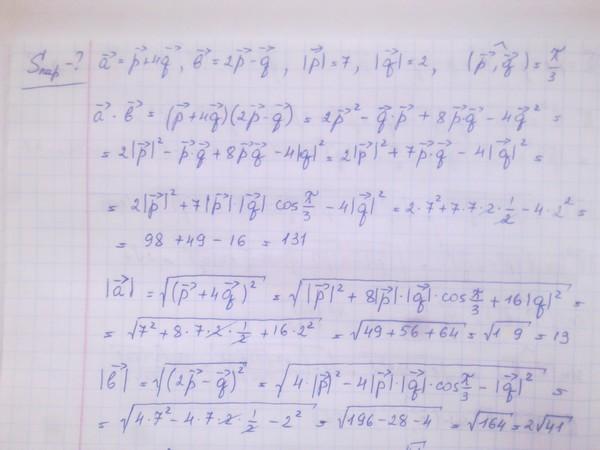 Sпар-? a⃗ = p⃗+4q⃗, b⃗ = 2p⃗-q⃗, |p⃗|=7, |q⃗|=2, (p⃗,^q⃗)=π/3
a⃗·b⃗ = (p⃗+4q⃗)(2p⃗-q⃗) = 2p⃗² - q⃗·p⃗ + 8p⃗·q⃗ - 4q⃗² =
= 2|p⃗|² - p⃗·q⃗ + 8p⃗q⃗ - 4|q|² = 2|p⃗|² + 7p⃗·q⃗ - 4|q⃗|² =
= 2|p⃗|² + 7|p⃗|·|q⃗| cos π/3 - 4|q⃗|² = 2·7² + 7·7·2·1/2 - 4·2² =
= 98 + 49 - 16 = 131
|a⃗| = √(p⃗+4q⃗)² = √|p⃗|² + 8|p⃗|·|q⃗|·cos π/3 + 16|q|² =
= √7² + 8·7·2·1/2 + 16·2² = √49+56+64 = √1 9 = 13
|b⃗| = √(2p⃗-q⃗)² = √4·|p⃗|² - 4|p⃗|·|q⃗|·cos π/3 - |q⃗|² =
= √4·7² - 4·7·2·1/2 - 2² = √196-28-4 = √164 = 2√41